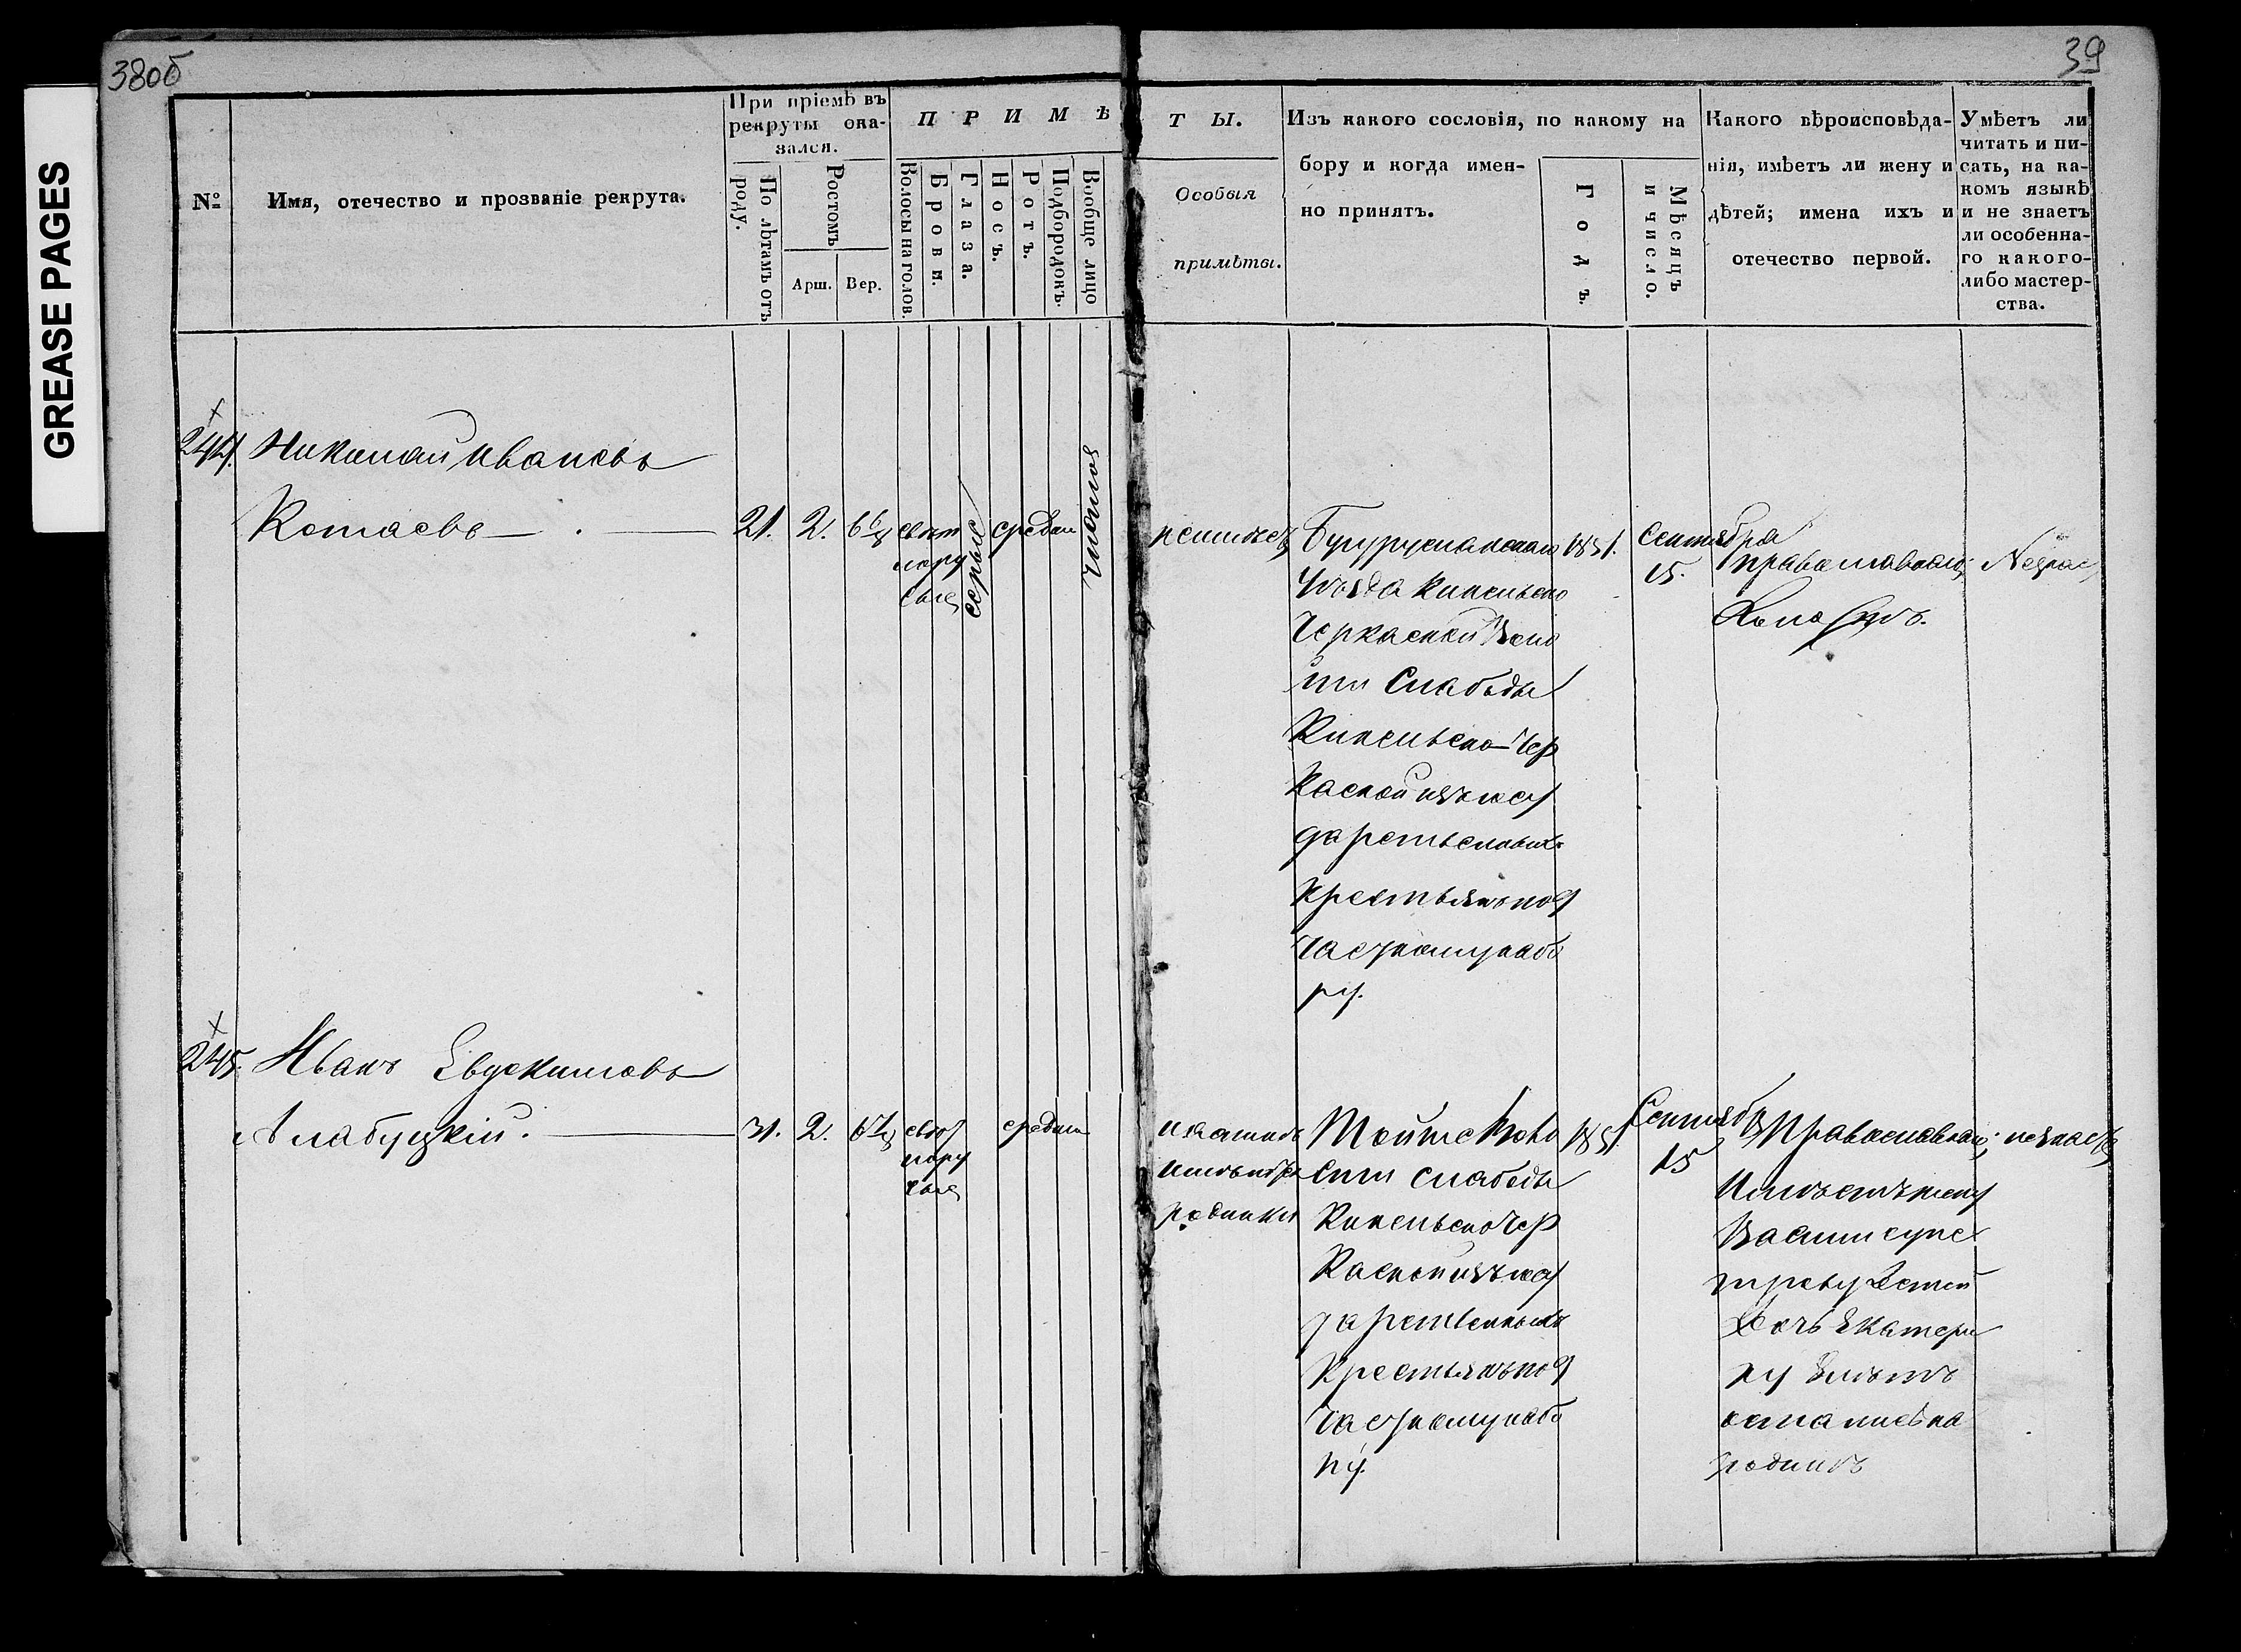 38об
39
GREASE PAGES
№
Имя, отечество и прозваніе рекрута.
При пріемѣ въ
рекруты ока-
зался.
По лѣтамъ отъ
роду.
Ростомъ
Арш.
Вер.
ПРИМѢ
Волосы на голов.
Брови.
Глаза.
Носъ.
Ротъ.
Подбородокъ.
Вообще лицо
ТЫ.
Особыя
примѣты.
Изъ какого сословія, по какому на
бору и когда имен-
но принятъ.
Годъ.
Мѣсяцъ
и число.
Какого вѣроисповѣда-
нія, имѣетъ ли жену и
дѣтей; имена ихъ и
отечество первой.
Умѣетъ ли
читать и пи-
сать, на ка-
комъ языкѣ
и не знаетъ
ли особенна-
го какого-
либо мастер-
ства.
244. Николай Ивановъ
Котаевъ
21. 2. 6 свѣт
лору
сые
серые
средніе
чистое
неимѣетъ
Бугурусланскаго
Уѣзда Кинельско
Черкаской Воло
сти Слабоды
Кинельско Чер
каской изъ госу
дарственныхъ
крестьянъ по
частному набо
ру.
1851.
Сентября
15.
Православнаго;
Холостъ.
245. Иванъ Евдокимовъ
Алабуцкій.
31. 2. 6
лору
сые
средніе
родинки
Тойже Воло
сти Слабоды
Кинельско Чер
каской изъ госу
дарственныхъ
крестьянъ по
частному набо
ру.
1851
Сентября
15
Православнаго;
Имѣетъ жену
дочь Екатери
ну
остались на
родинѣ